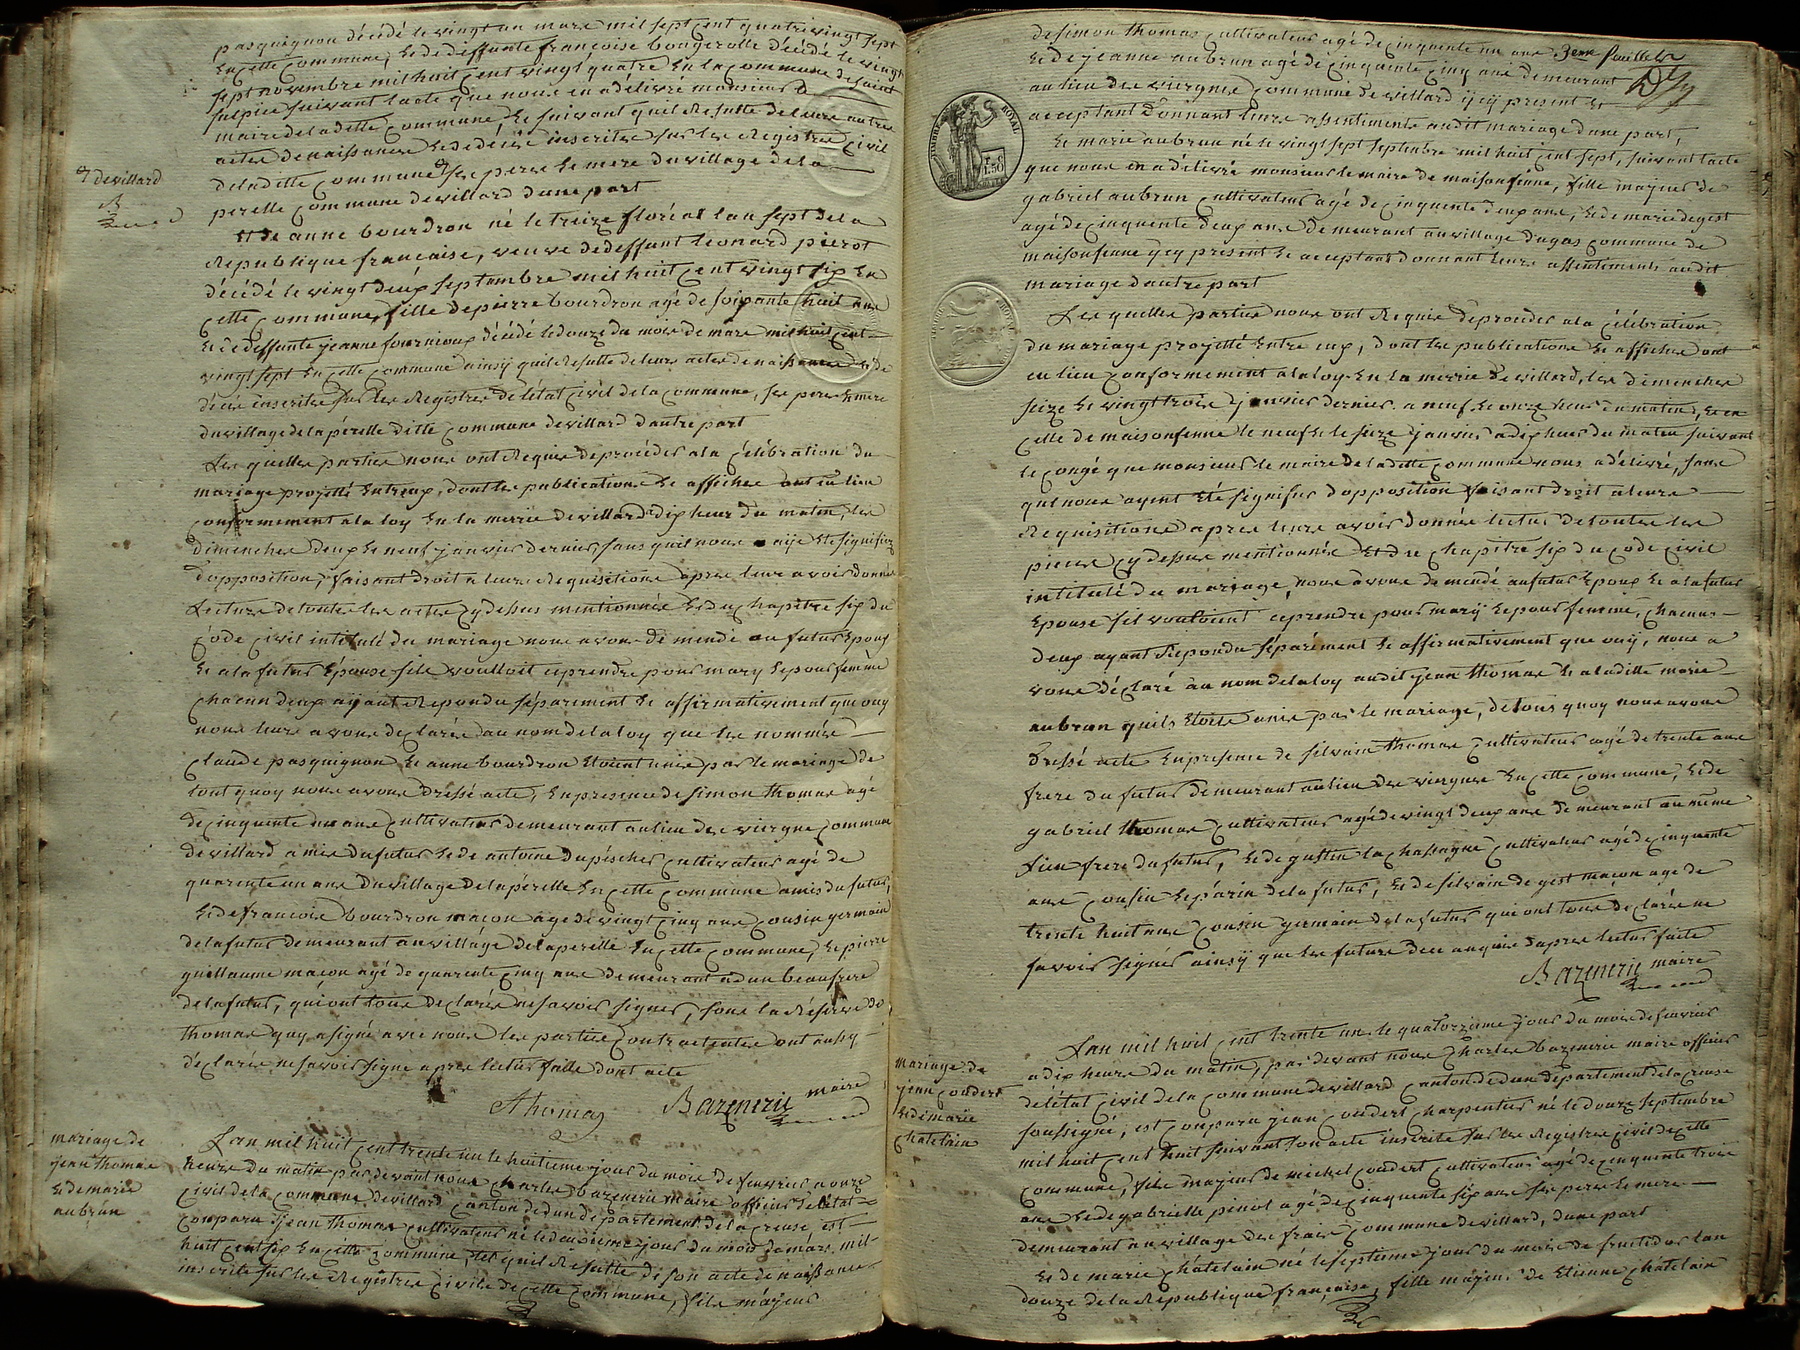 pasquignon décédé le vingt un mars mil sept cent quatrevingt sept
En cette commune, Et de deffunte françoise bougerolle décédé le vingt
sept novembre mil huit cent vingt quatre En la commune de saint
sulpice suivant lacte que nous en a délivré monsieur le
maire de la ditte commune, Et suivant quil Resulte de leurs autres
actes de naissances Et de décès inscrites sur les Registres civil
de la ditte commune ses peres Et mere du village de la
perelle commune de villard dune part
de villard
Et de anne bourdron né le treize floréal lan sept de la
Republique française, veuve de deffunt leonard pierot
décédé le vingt deux septembre mil huit cent vingt six En
cette commune, fille de pierre bourdron agé de soixante huit ans
Et de deffunte jeanne fournioux décédé le douze du mois de mars mil huit cent
vingt sept En cette commune ainsÿ quil Resulte de leurs actes de naissances Et de
décès inscrites sur les Registres de l'état civil de la commune, ses peres Et mere
du village de la pérelle ditte commune de villard dautre part
Les quelles parties nous ont Requis de procéder a la célébration du
mariage projetté Entreux, dont les publications Et affiches ont eu lieu
conformement a la loy En la mérie de villard a dix heurs du matin, les
dimenches deux Et neuf janvier dernier, sans quil nous aije Eté signifiez
dopposition, faisant droit a leurs Requisitions apres leurs avoir donnée
Lecture de toutes les actes cy dessus mentionnée Et du chapitre six du
Code civil intitulé du mariage nous avons demendé au futur Epoux
Et a la futur Epouse sils voulloit ceprendre pour marÿ Et pour femme
chacun deux aÿant Repondu séparement Et affirmativement que ouy
nous leurs avons declarée au nom de la loy que les nommée
Claude pasquignon Et anne bourdron Etoient unie par le mariage de
tout quoy nous avons dréssé acte, En presence de simon thomas agé
de cinquente un ans cultivateur demeurant au lieu des viergne commune
de villard amis du futur Et de antoine dupéscher cultivateur agé de
quarente un ans du village de la pérelle En cette commune amis du futur,
Et de francois bourdron maçon age de vingt cinq ans cousin germain
de la futur demeurant au village de la perelle En cette commune, Et pierre
guillaume macon agé de quarente cinq ans demeurant a dun beaufrere
de la futur, qui ont tous déclarée ne savoir signer, sous la Réserve de
thomas quy a signé avec nous les parties contractentes ont aussy
déclarée ne savoir signe apres lectur faitte dont acte
Thomas Bazenerie maire
mariage de
jean thomas
Et de marie
aubrun
Lan mil huit cent trente un le huitieme jour du mois de fevrier a onze
heures du matin par devant nous charles bazenerie maire officier de létat
civil de la commune de villard canton de dun département de la creuse est
comparu jean thomas cultivateur né le deuxieme jour du mois de mars mil
huit cent six En cette commune, tel quil Résulte de son acte de naissance
inscrite sur les Registres civils de cette commune, fils majeur
de simon thomas cultivateur agé de cinquente un ans
Et de jeanne aubrun agé de cinquente cinq ans demeurant
au lieu des viergnes commune de villard ÿ cÿ present Et
acceptant donnant leurs assentiments audit mariage dune part,
TIMBRE ROYAL
1.F 50
Et marie aubrun né le vingt sept septembre mil huit cent sept, suivant lacte
que nous en a délivré monsieur le maire de maisonfeinne, fille majeur de
gabriel aubrun cultivateur agé de cinquente deux ans, Et de marie degest
agé de cinquente deux ans demeurant au village dugas commune de
maisonfeinne ÿ cÿ present Et acceptant donnant leurs assentiments audit
mariage dautre part
Les quelles parties nous ont Requis de proceder a la célébration
du mariage projetté Entre eux, dont les publications Et affiches ont
eu lieu conformement a la loy En la mérie de villard, les dimenches
seize Et vingt trois janvier dernier a neuf Et onze heurs du matin, Et en
celle de maisonfenne le neuf Et le seize janvier a dix heurs du matin suivant
le congé que monsieur le maire de la ditte commune nous a délivré, sans
quil nous ayent Eté signifier dopposition faisant droit a leurs
Requisitions apres leurs avoir donnée lectur de toutes les
pieces cy dessus mentionnée Et du chapitre six du code civil
intitulé du mariage, nous avons demendé au futur Epoux Et a la futur
Epouse sils vouloient ceprendre pour marÿ Et pour femme, chacuns
deux ayant Repondu séparément Et affirmativement que ouÿ, nous a
vons déclaré au nom de la loy audit jean thomas Et a laditte marie
aubrun quils Etoite unie par le mariage, de tous quoy nous avons
dressé acte En presence de silvain thomas cultivateur agé de trente ans
frere du futur demeurant au lieu des viergnes En cette commune, Et de
gabriel thomas cultivateur agé de vingt deux ans demeurant au même
lieu frere du futur, Et de gustin lachassagne cultivateur agé de cinquente
ans cousin Et parin de la futur, Et de silvain degest maçon age de
trente huit ans cousin germain de la futur qui ont tous déclarée ne
savoir signér ainsÿ que les futurs de ce anquis dapres lectur faite
Bazenerie maire
mariage de
jean coudert
Et de marie
Chatelain
Lan mil huit cent trente un le quatorzieme jour du mois de fevrier
a dix heure du matin, par devant nous Charles bazenerie maire officier
de létat civil de la commune de villard canton de dun département de la creuse
soussigné, est comparu jean coudert charpentier né le douze septembre
mil huit cent huit suivant son acte inscrite sur les Registres civil de cette
commune, fils majeur de michel coudert cultivateur agé de cinquente trois
ans Et de gabrielle pinot agé de cinquente six ans ses peres Et mere
demeurant au village des frais commune de villard, dune part
Et de marie châtelain né le septieme jour du mois de fructidor lan
douze de la République française, fille majeur de Etienne châtelain